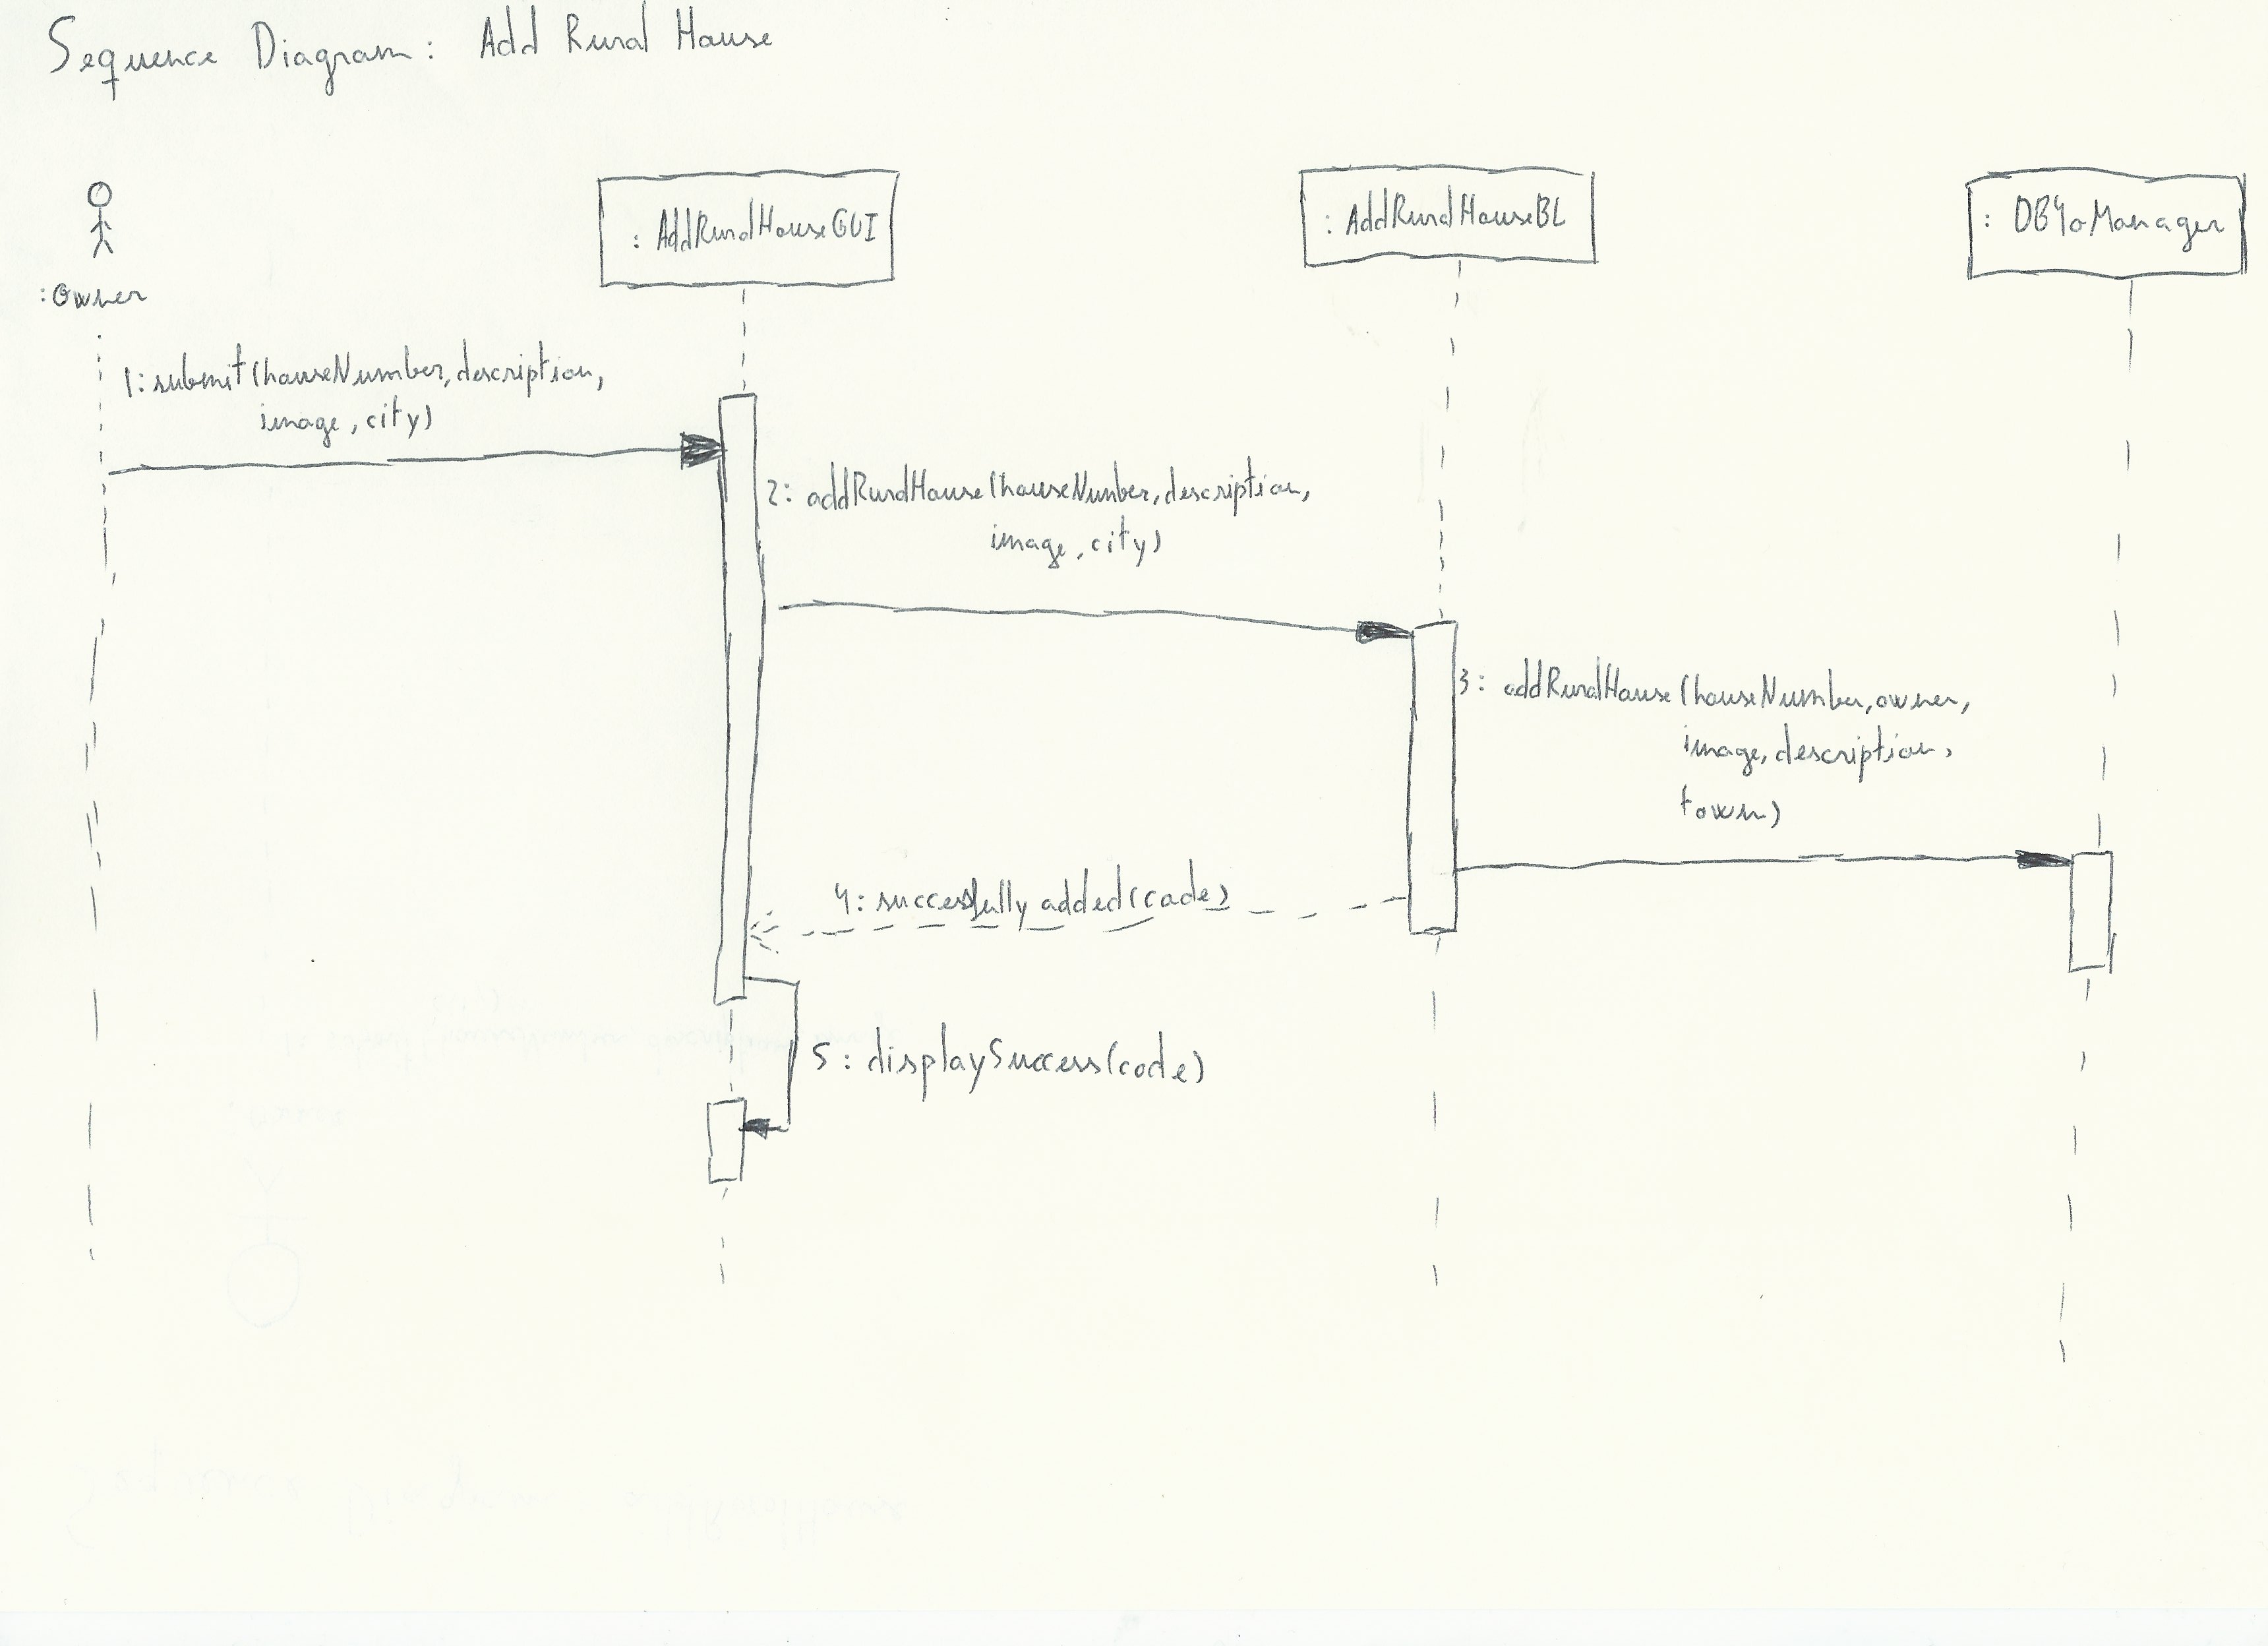 Sequence Diagram: Add Rural House
:Owner
: AddRuralHouseGUI
: AddRuralHouseBL
: DB4oManager
1: submit(houseNumber, description,
image, city)
2: addRuralHouse(houseNumber, description,
image, city)
3: addRuralHouse(houseNumber, owner,
image, description,
town)
4: successfully added(code)
5: displaySuccess(code)